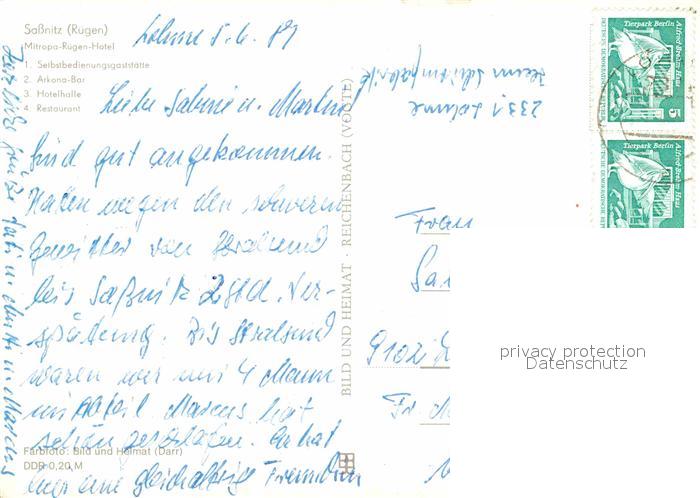 Saßnitz (Rügen)
Mitropa-Rügen-Hotel
1. Selbstbedienungsgaststätte
2. Arkona-Bar
3. Hotelhalle
4. Restaurant
Lohme 5. 6. 89
Liebe Sabine u. Martin
Sind gut angekommen.
Hatten wegen den schweren
Gewitter von Stralsund
bis Saßnitz 2 Std. Ver-
spätung. Bis Stralsund
waren wir nur 4 Mann
im Abteil Marcus hat
schön geschlafen. Er hat
hier eine gleichaltrige Freundin
Farbfoto: Bild und Heimat (Darr)
DDR 0,20 M
BILD UND HEIMAT · REICHENBACH (VOGTL)
2331 Lohme
Heim
Tierpark Berlin
Alfred-Brehm-Haus
5
Tierpark Berlin
Alfred-Brehm-Haus
Frau
Sa
9102
Fr.
privacy protection
Datenschutz